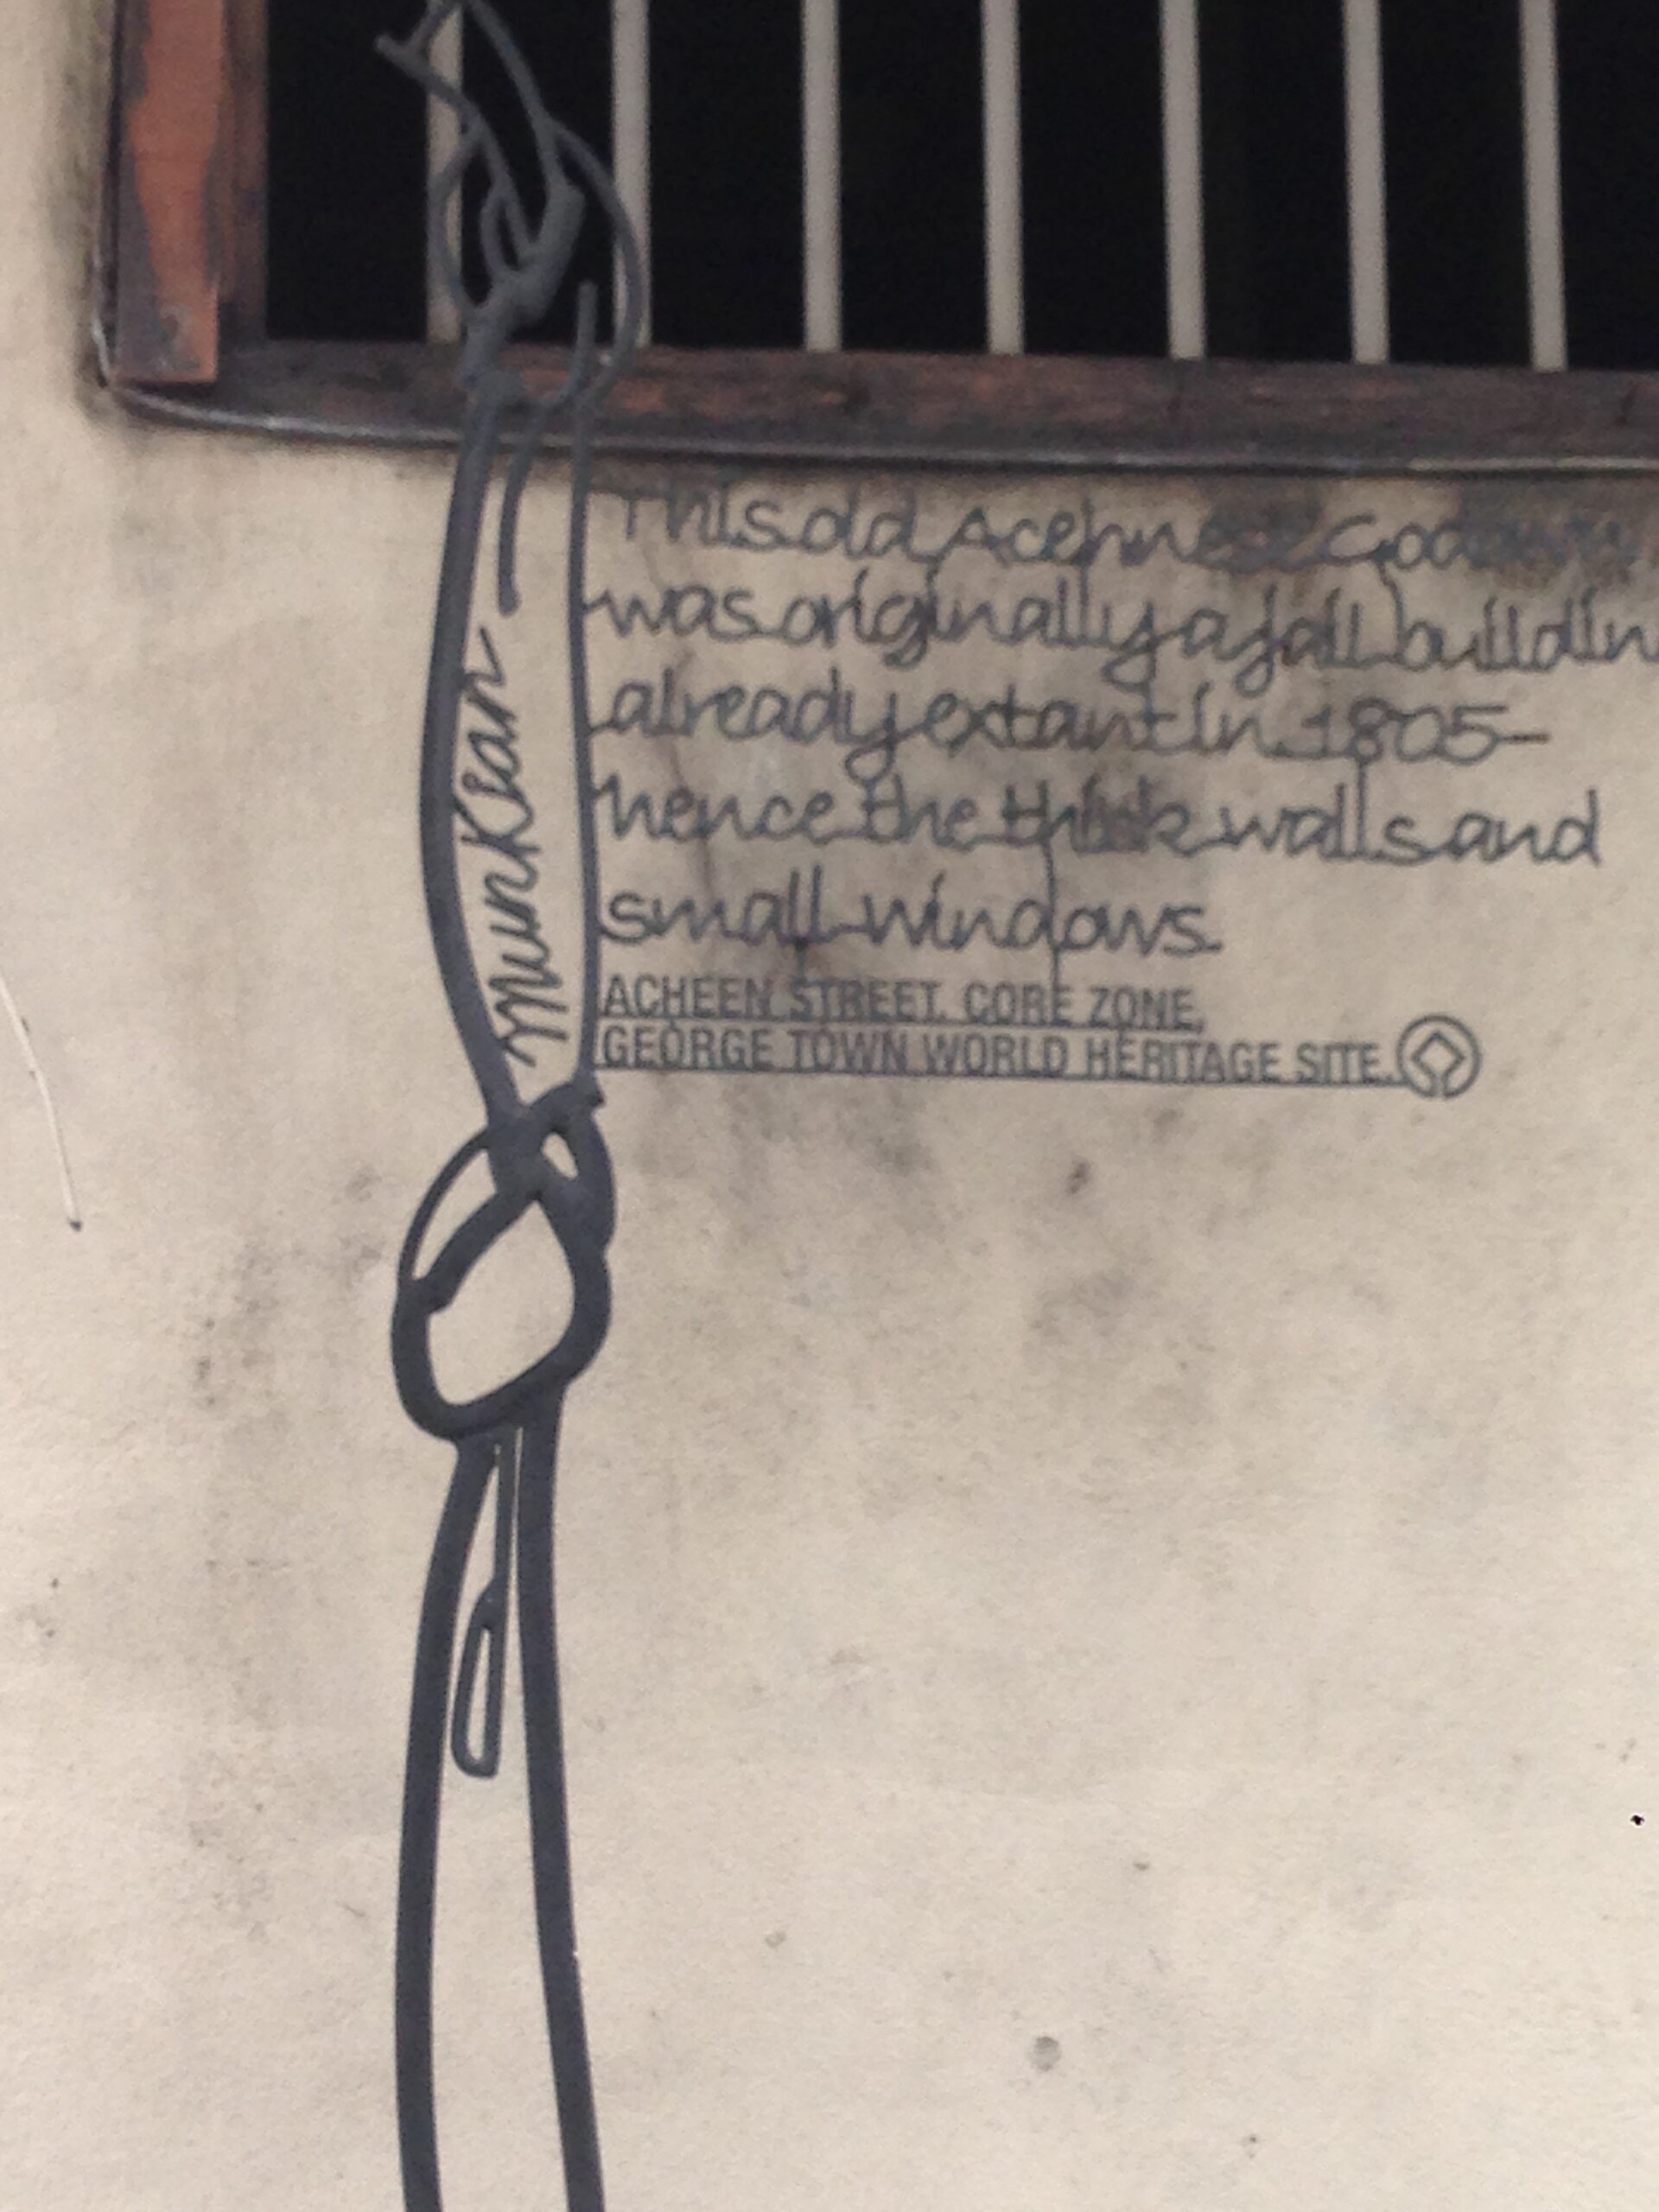 This old Acehnese Godown
was originally a jail buildin
already extant in 1805-
hence the thick walls and
small windows.
ACHEEN STREET, CORE ZONE,
GEORGE TOWN WORLD HERITAGE SITE.
Munkian